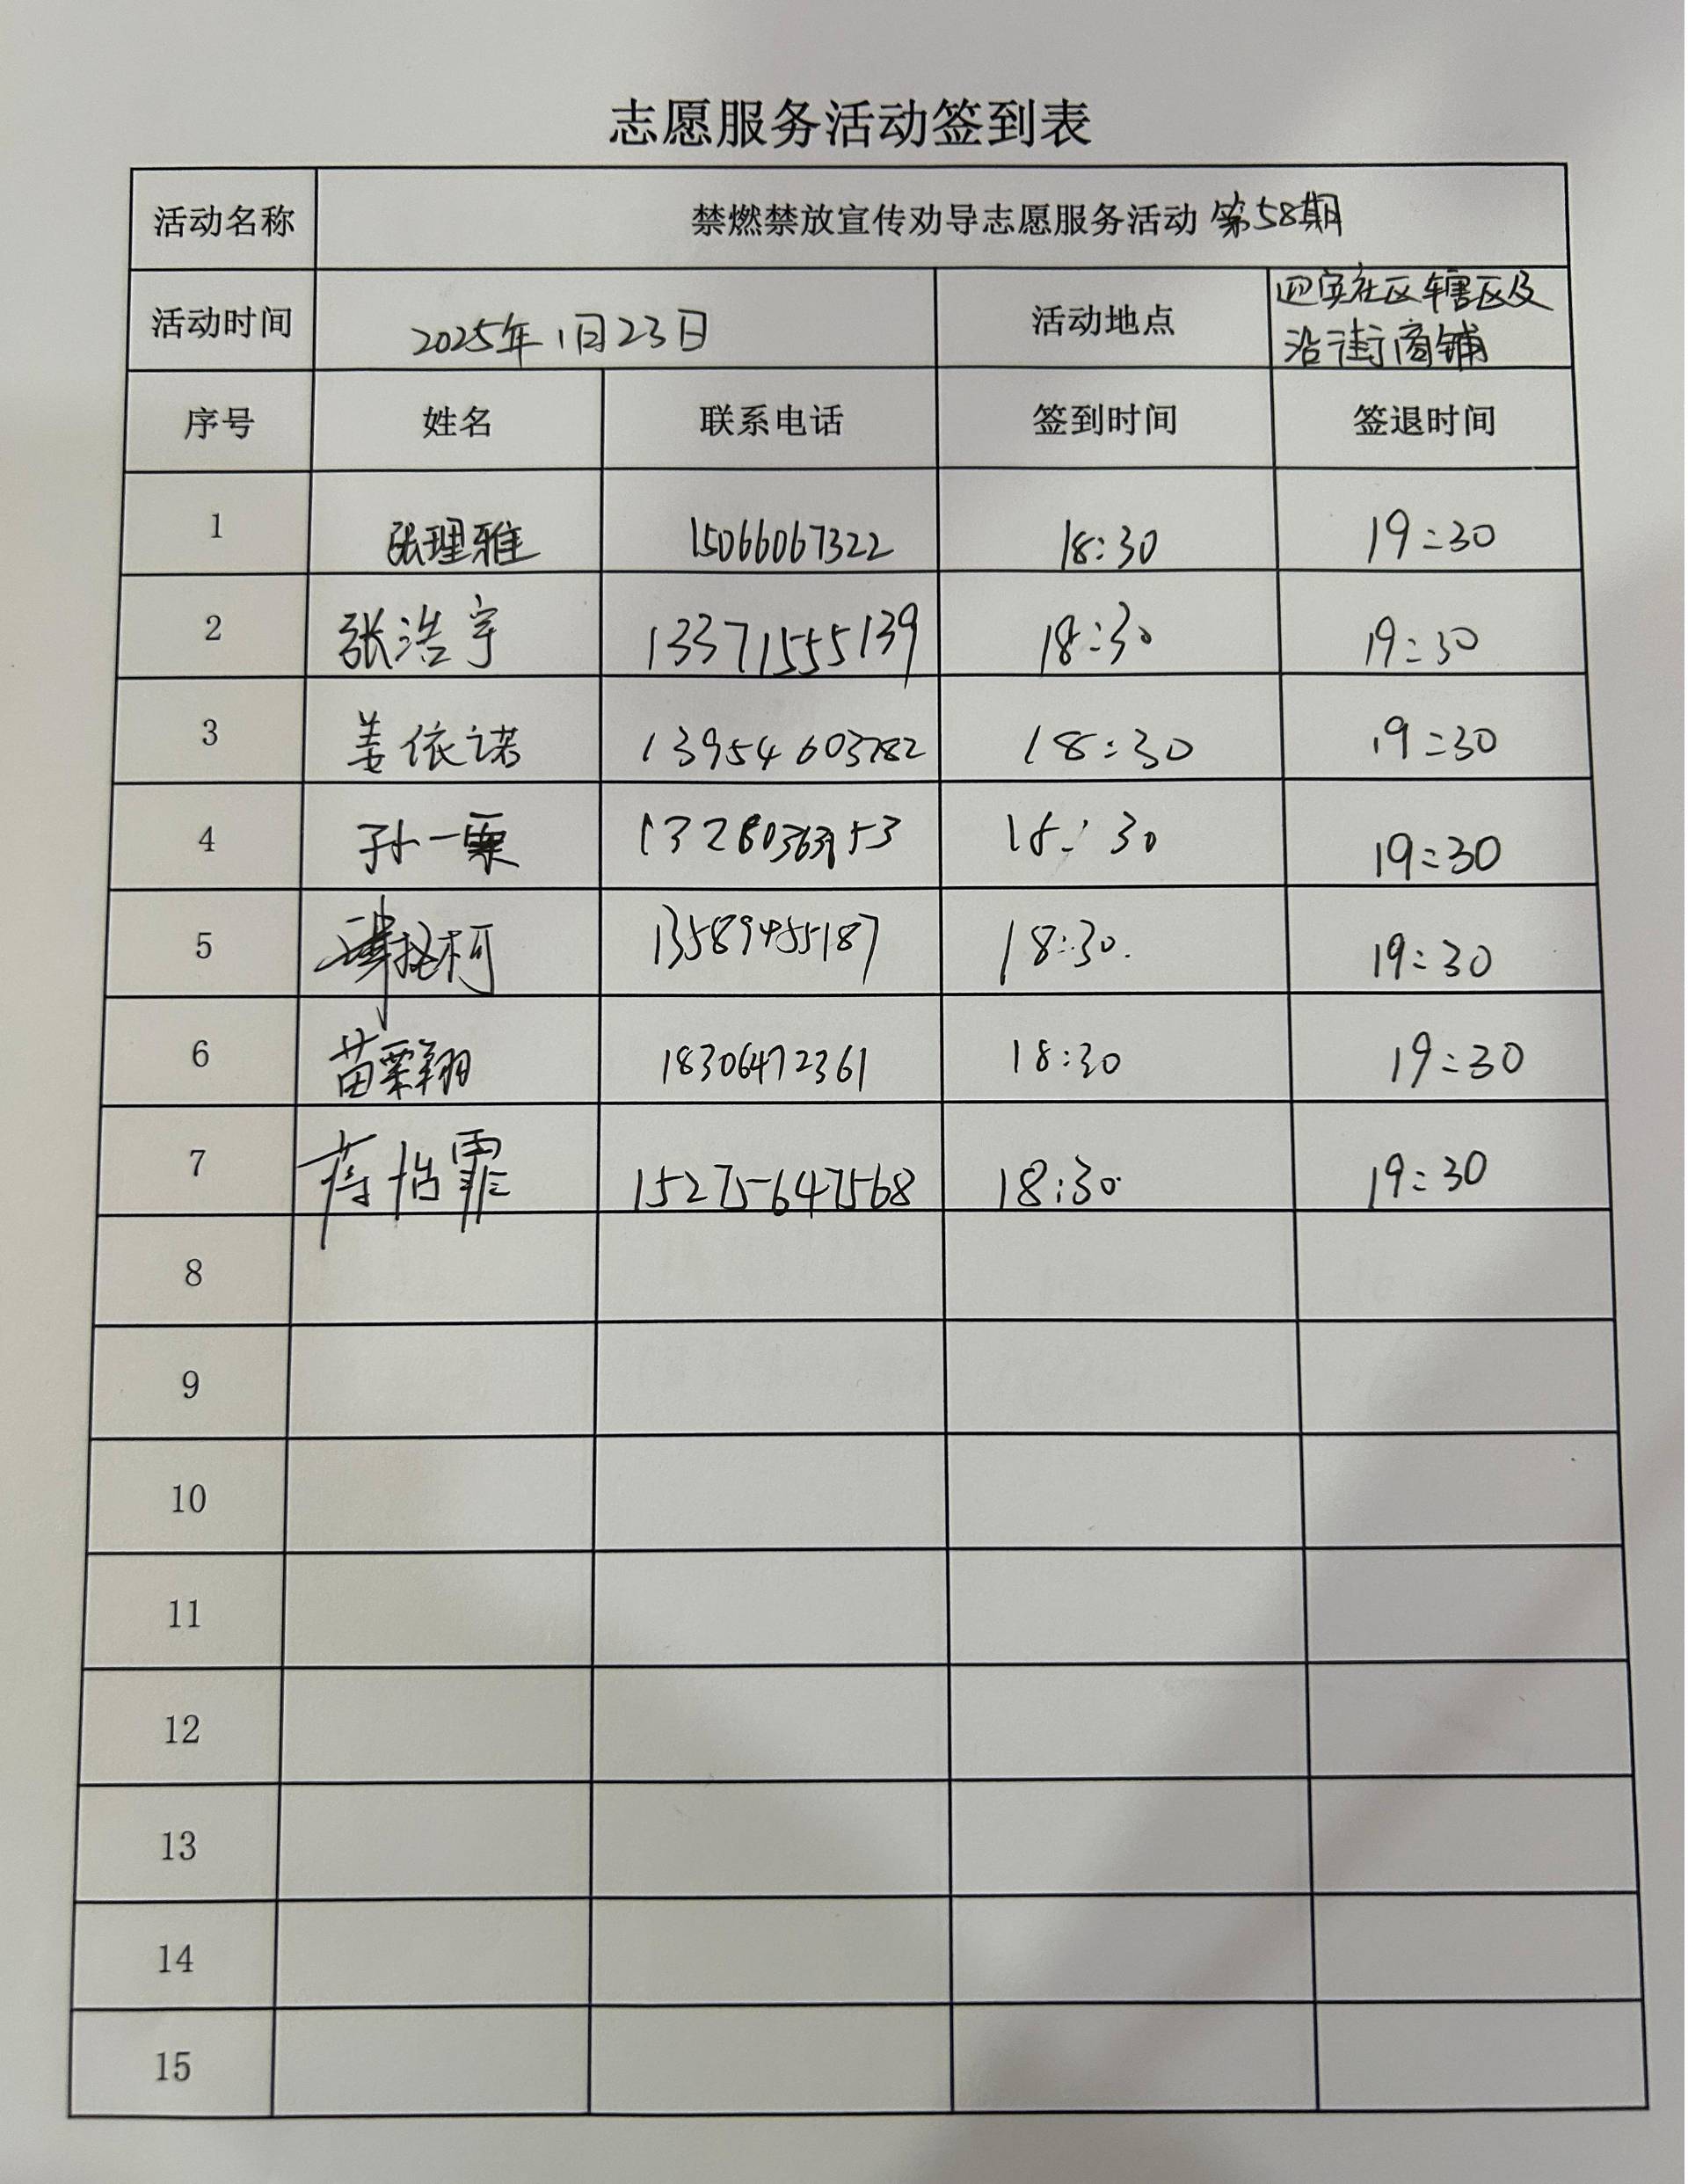 志愿服务活动签到表
活动名称 禁燃禁放宣传劝导志愿服务活动 第58期
活动时间 2025年1月23日 活动地点 四宾社区辖区及
沿街商铺
序号 姓名 联系电话 签到时间 签退时间
1 张理雅 15066067322 18:30 19:30
2 张浩宇 13371555139 18:30 19:30
3 姜依诺 13954603782 18:30 19:30
4 孙一栗 18:30 19:30
5 柯 13589455187 18:30 19:30
6 苗栗翔 18306472361 18:30 19:30
7 蒋怡霏 15275647568 18:30 19:30
8
9
10
11
12
13
14
15